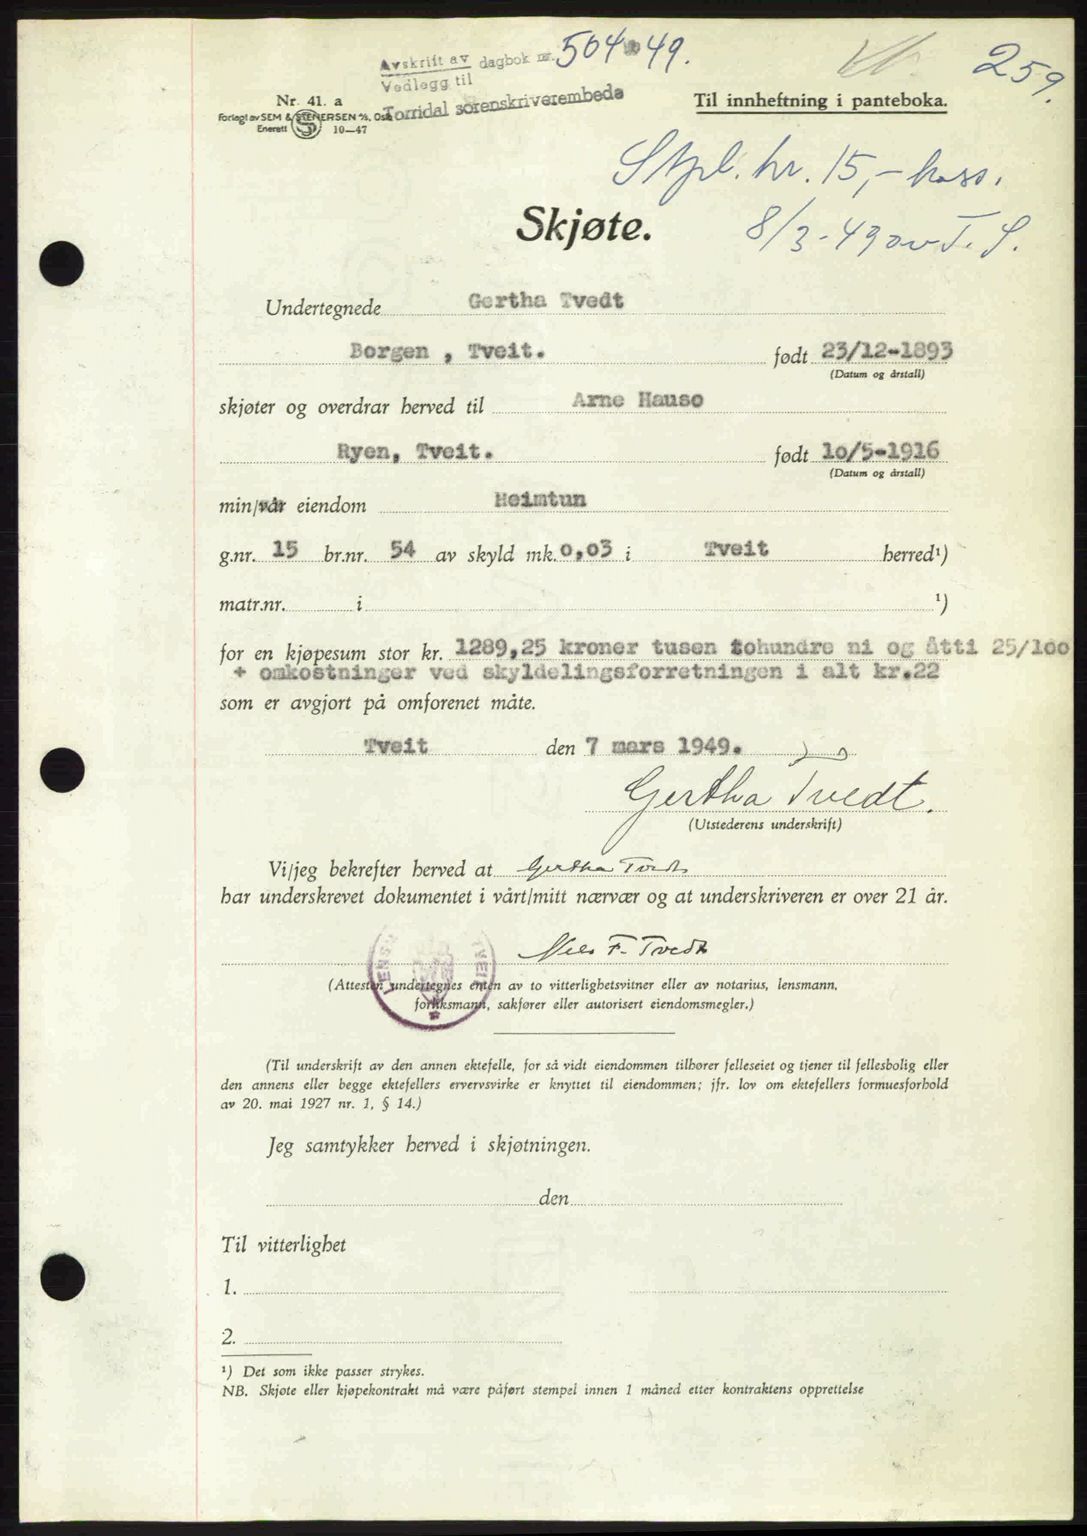 Avskrift av dagbok nr. 504 49.
Vedlegg til
Torridal sorenskriverembede
259.
Nr. 41. a
Til innheftning i panteboka.
Forlagt av SEM & STENERSEN A/S, Oslo
Enerett S 10—47
Stpl. kr. 15,- kass.
8/3-49 av T. S.
Skjøte.
Undertegnede Gertha Tvedt
Borgen, Tveit. født 23/12-1893
(Datum og årstall)
skjøter og overdrar herved til Arne Hauso
Ryen, Tveit. født 10/5-1916
(Datum og årstall)
min/vår eiendom Heimtun
g.nr. 15 br.nr. 54 av skyld mk. 0,03 i Tveit herred¹)
matr.nr. i ¹)
for en kjøpesum stor kr. 1289,25 kroner tusen tohundre ni og åtti 25/100
+ omkostninger ved skyldelingsforretningen i alt kr.22
som er avgjort på omforenet måte.
Tveit den 7 mars 1949.
Gertha Tvedt.
(Utstederens underskrift)
Vi/jeg bekrefter herved at Gertha Tvedt
har underskrevet dokumentet i vårt/mitt nærvær og at underskriveren er over 21 år.
Nils F. Tvedt
(Attesten undertegnes enten av to vitterlighetsvitner eller av notarius, lensmann,
forliksmann, sakfører eller autorisert eiendomsmegler.)
(Til underskrift av den annen ektefelle, for så vidt eiendommen tilhører felleseiet og tjener til fellesbolig eller
den annens eller begge ektefellers ervervsvirke er knyttet til eiendommen; jfr. lov om ektefellers formuesforhold
av 20. mai 1927 nr. 1, § 14.)
Jeg samtykker herved i skjøtningen.
den
Til vitterlighet
1.
2.
¹) Det som ikke passer strykes.
NB. Skjøte eller kjøpekontrakt må være påført stempel innen 1 måned etter kontraktens opprettelse